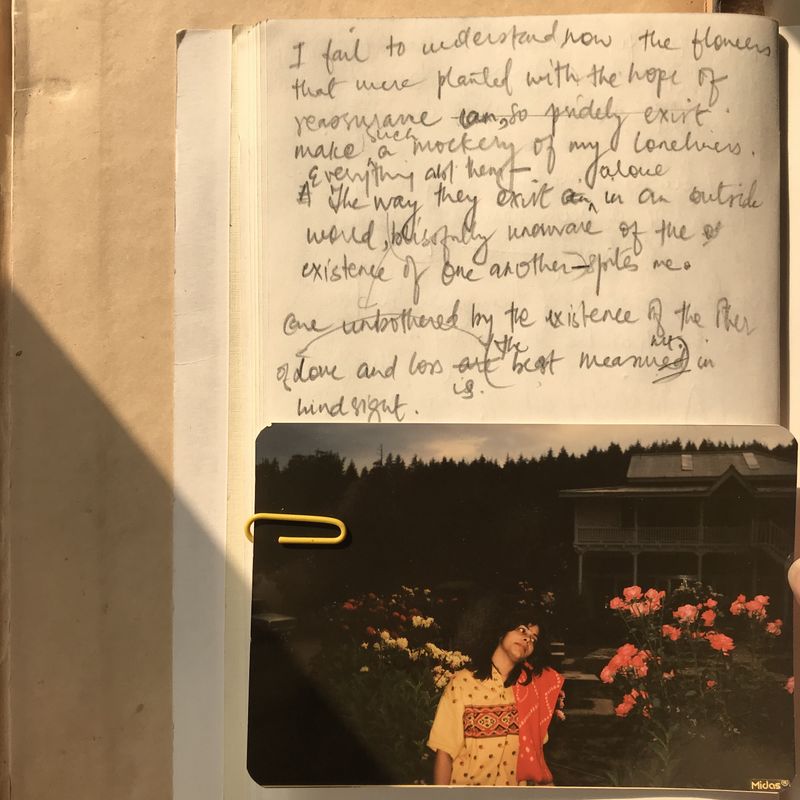 I fail to understand how the flowers
that were planted with the hope of
reassurance can, so pridely exist.
such
make a mockery of my loneliness.
Everything abt them— alone
A The way they exist in an outside
world, blissfully unaware of the
existence of one another—spites me.
One unbothered by the existence of the other
of love and loss are the best measured in
is.
hindsight.
Midas